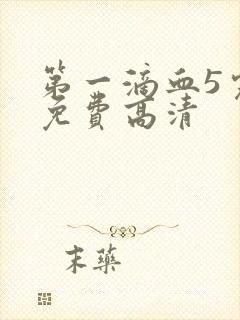 第一滴血5
免费高清
末藥